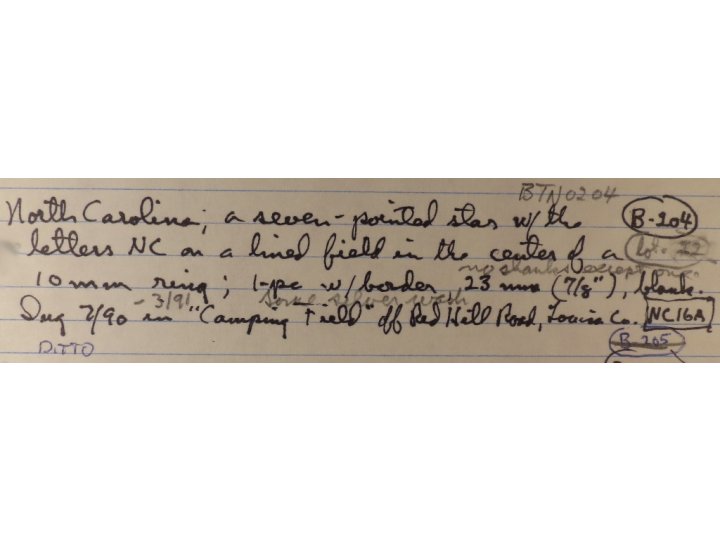 BTN0204
North Carolina; a seven-pointed star w/ the B-204
letters NC on a lined field in the center of a Lot
no shanks except one.
10 mm ring; 1-pc w/ border, 23 mm (7/8"), blank.
- 3/91 some silver wash
Dug 7/90 in "Camping Field" off Red Hill Road, Louisa Co. NC16A
DITTO B-205